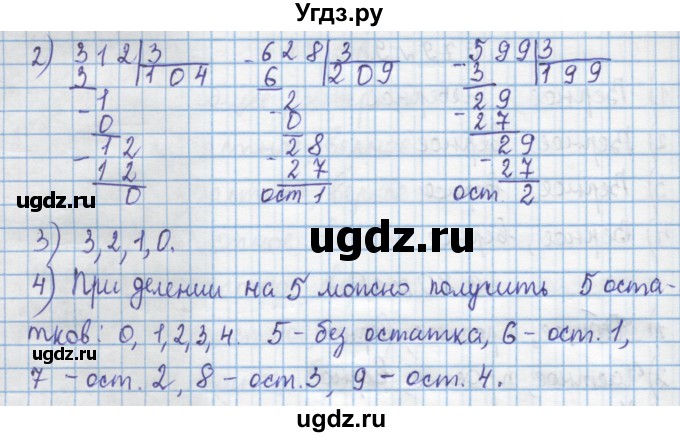 Угдз.ру
2) 312 | 3   628 | 3   599 | 3
3 104   6 209   3 199
- 1   2   29
0   - 0   - 27
- 12   - 28   29
12   27   - 27
0   ост 1   ост. 2
угдз.ru
угдз.ru
угдз.ru
3) 3, 2, 1, 0.
4) При делении на 5 можно получить 5 оста-
тков: 0, 1, 2, 3, 4. 5 - без остатка, 6 - ост. 1,
7 - ост. 2, 8 - ост. 3, 9 - ост. 4.
угдз.ru
угдз.ru
угдз.ru